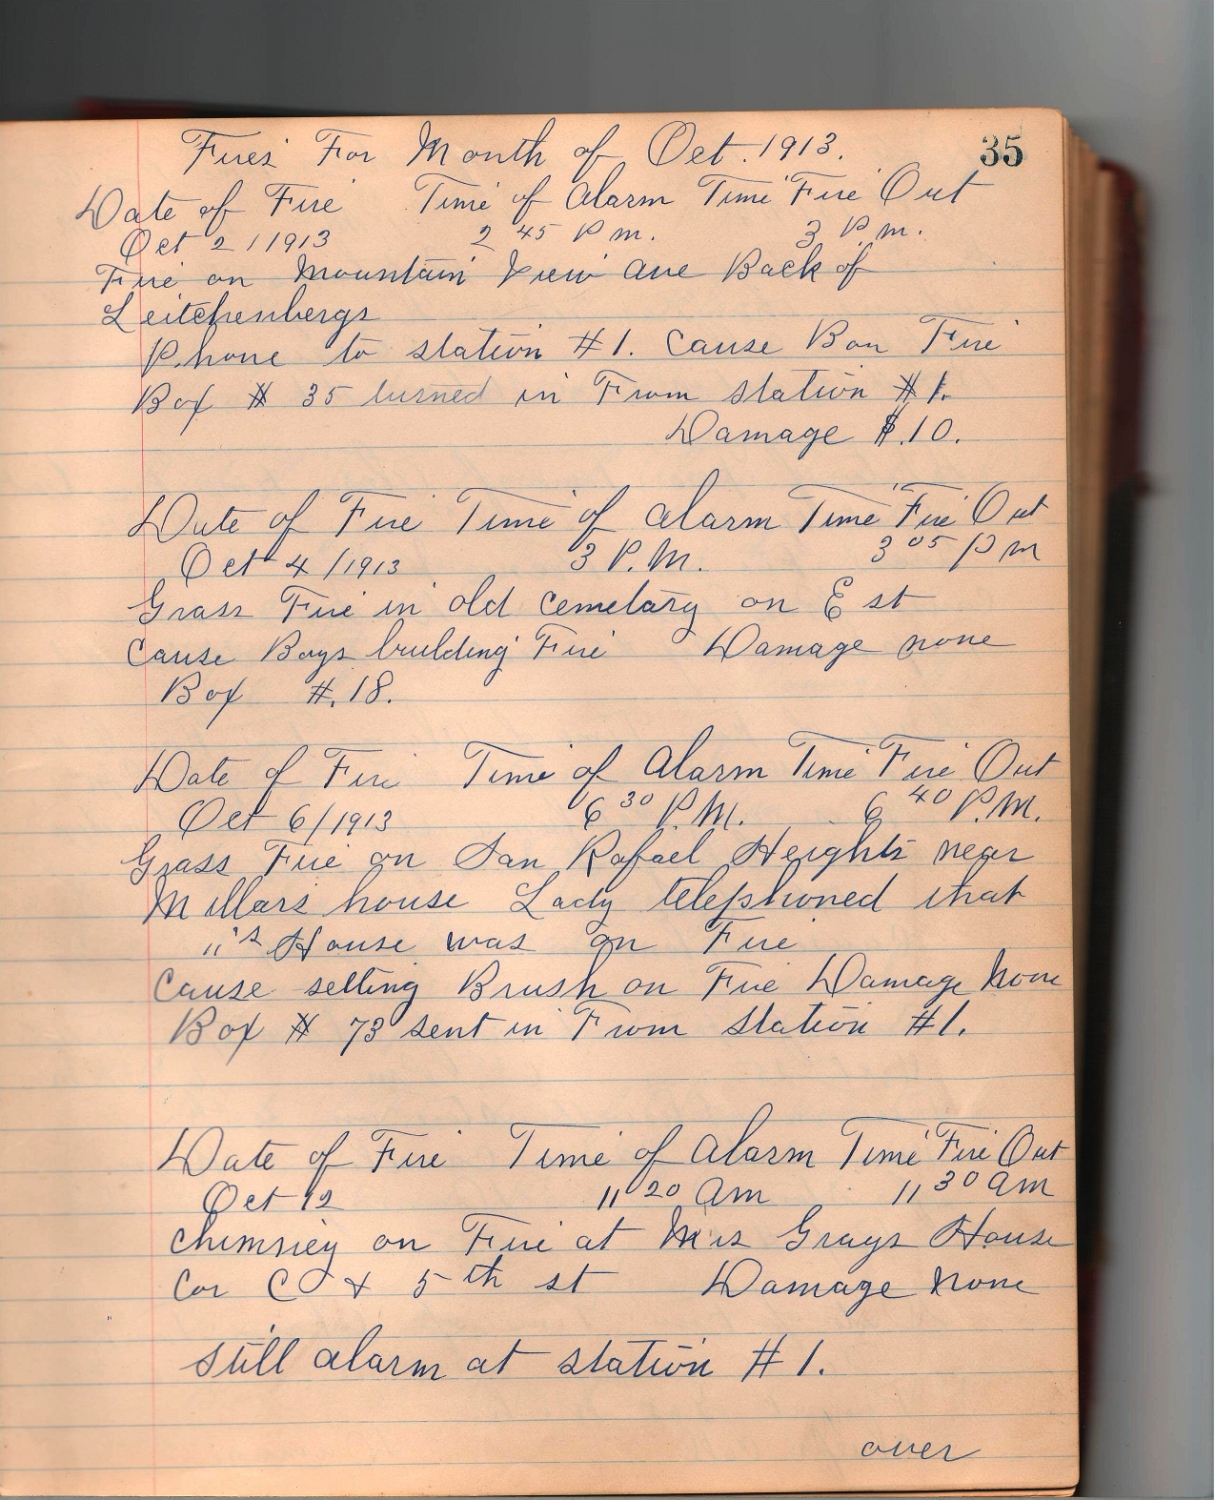 Fires For Month of Oct. 1913. 35
Date of Fire Time of Alarm Time Fire Out
Oct 2/1913 2 45 P m. 3 P. m.
Fire on Mountain View ave Back of
Leitchenbergs
Phone to station #1. Cause Bon Fire
Box # 35 turned in From station #1.
Damage $.10.
Date of Fire Time of alarm Time Fire Out
Oct 4/1913 3 P.M. 3 05 P m
Grass Fire in old cemetary on E st
Cause Boys building Fire Damage none
Box #.18.
Date of Fire Time of Alarm Time Fire Out
Oct 6/1913 6 30 P.M. 6 40 P.M.
Grass Fire on San Rafael Heights near
Millars house Lady telephoned that
"'s House was on Fire
Cause setting Brush on Fire Damage None
Box # 73 sent in From Station #1.
Date of Fire Time of Alarm Time Fire Out
Oct 12 11 20 Am 11 30 am
Chimney on Fire at Mrs Grays House
Cor C & 5th st Damage None
Still alarm at station #1.
over